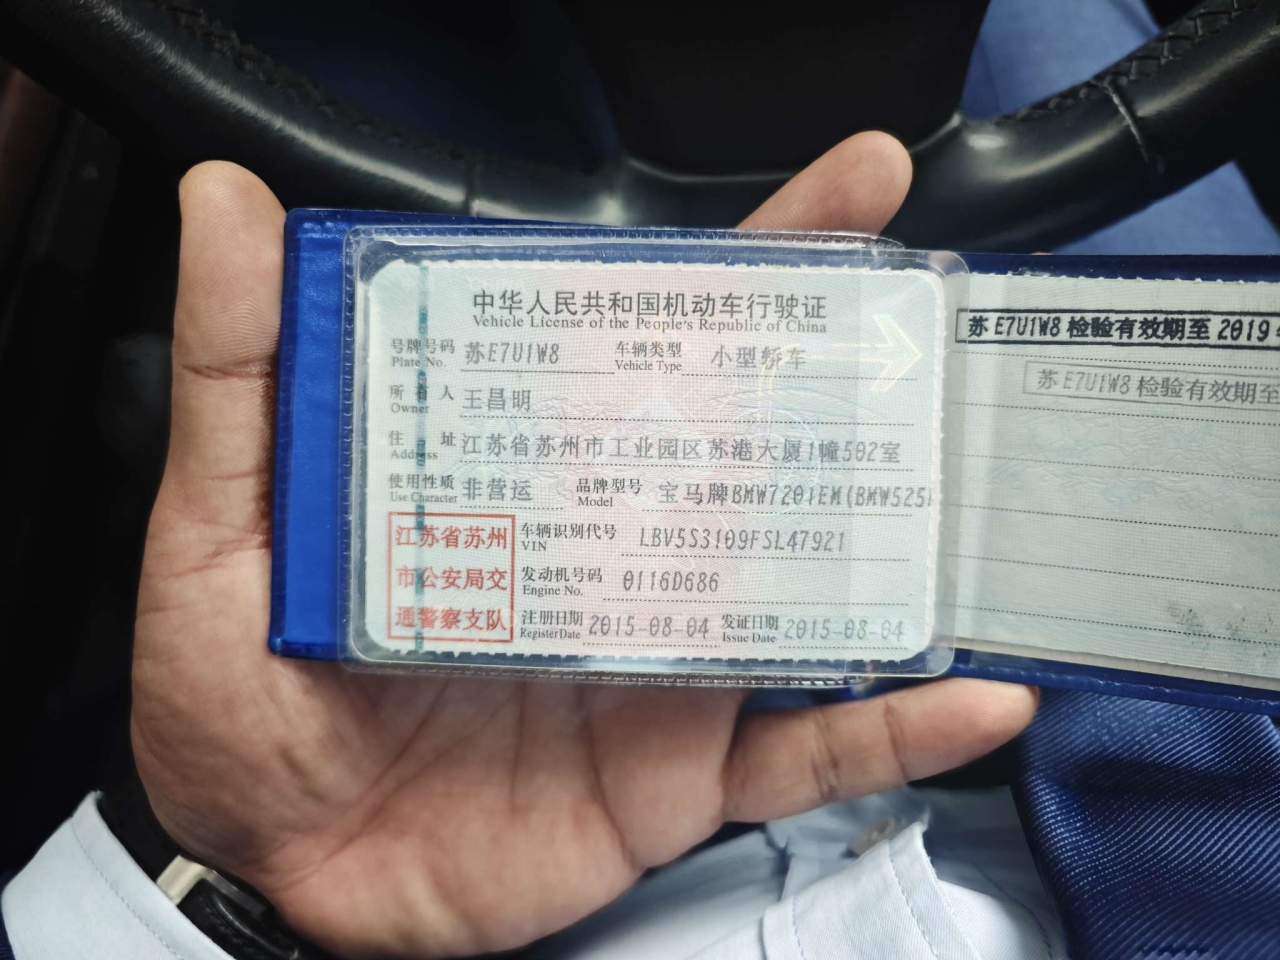 中华人民共和国机动车行驶证
Vehicle License of the People's Republic of China
号牌号码 苏E7U1W8 车辆类型 小型轿车
Plate No. Vehicle Type
所有人 王昌明
Owner
住址 江苏省苏州市工业园区苏港大厦1幢502室
Address
使用性质 非营运 品牌型号 宝马牌BMW7201EM(BMW525
Use Character Model
江苏省苏州
市公安局交
通警察支队
车辆识别代号 LBV5S3109FSL47921
VIN
发动机号码 0116D686
Engine No.
注册日期 2015-08-04 发证日期 2015-08-04
Register Date Issue Date
苏E7U1W8检验有效期至2019
苏E7U1W8检验有效期至